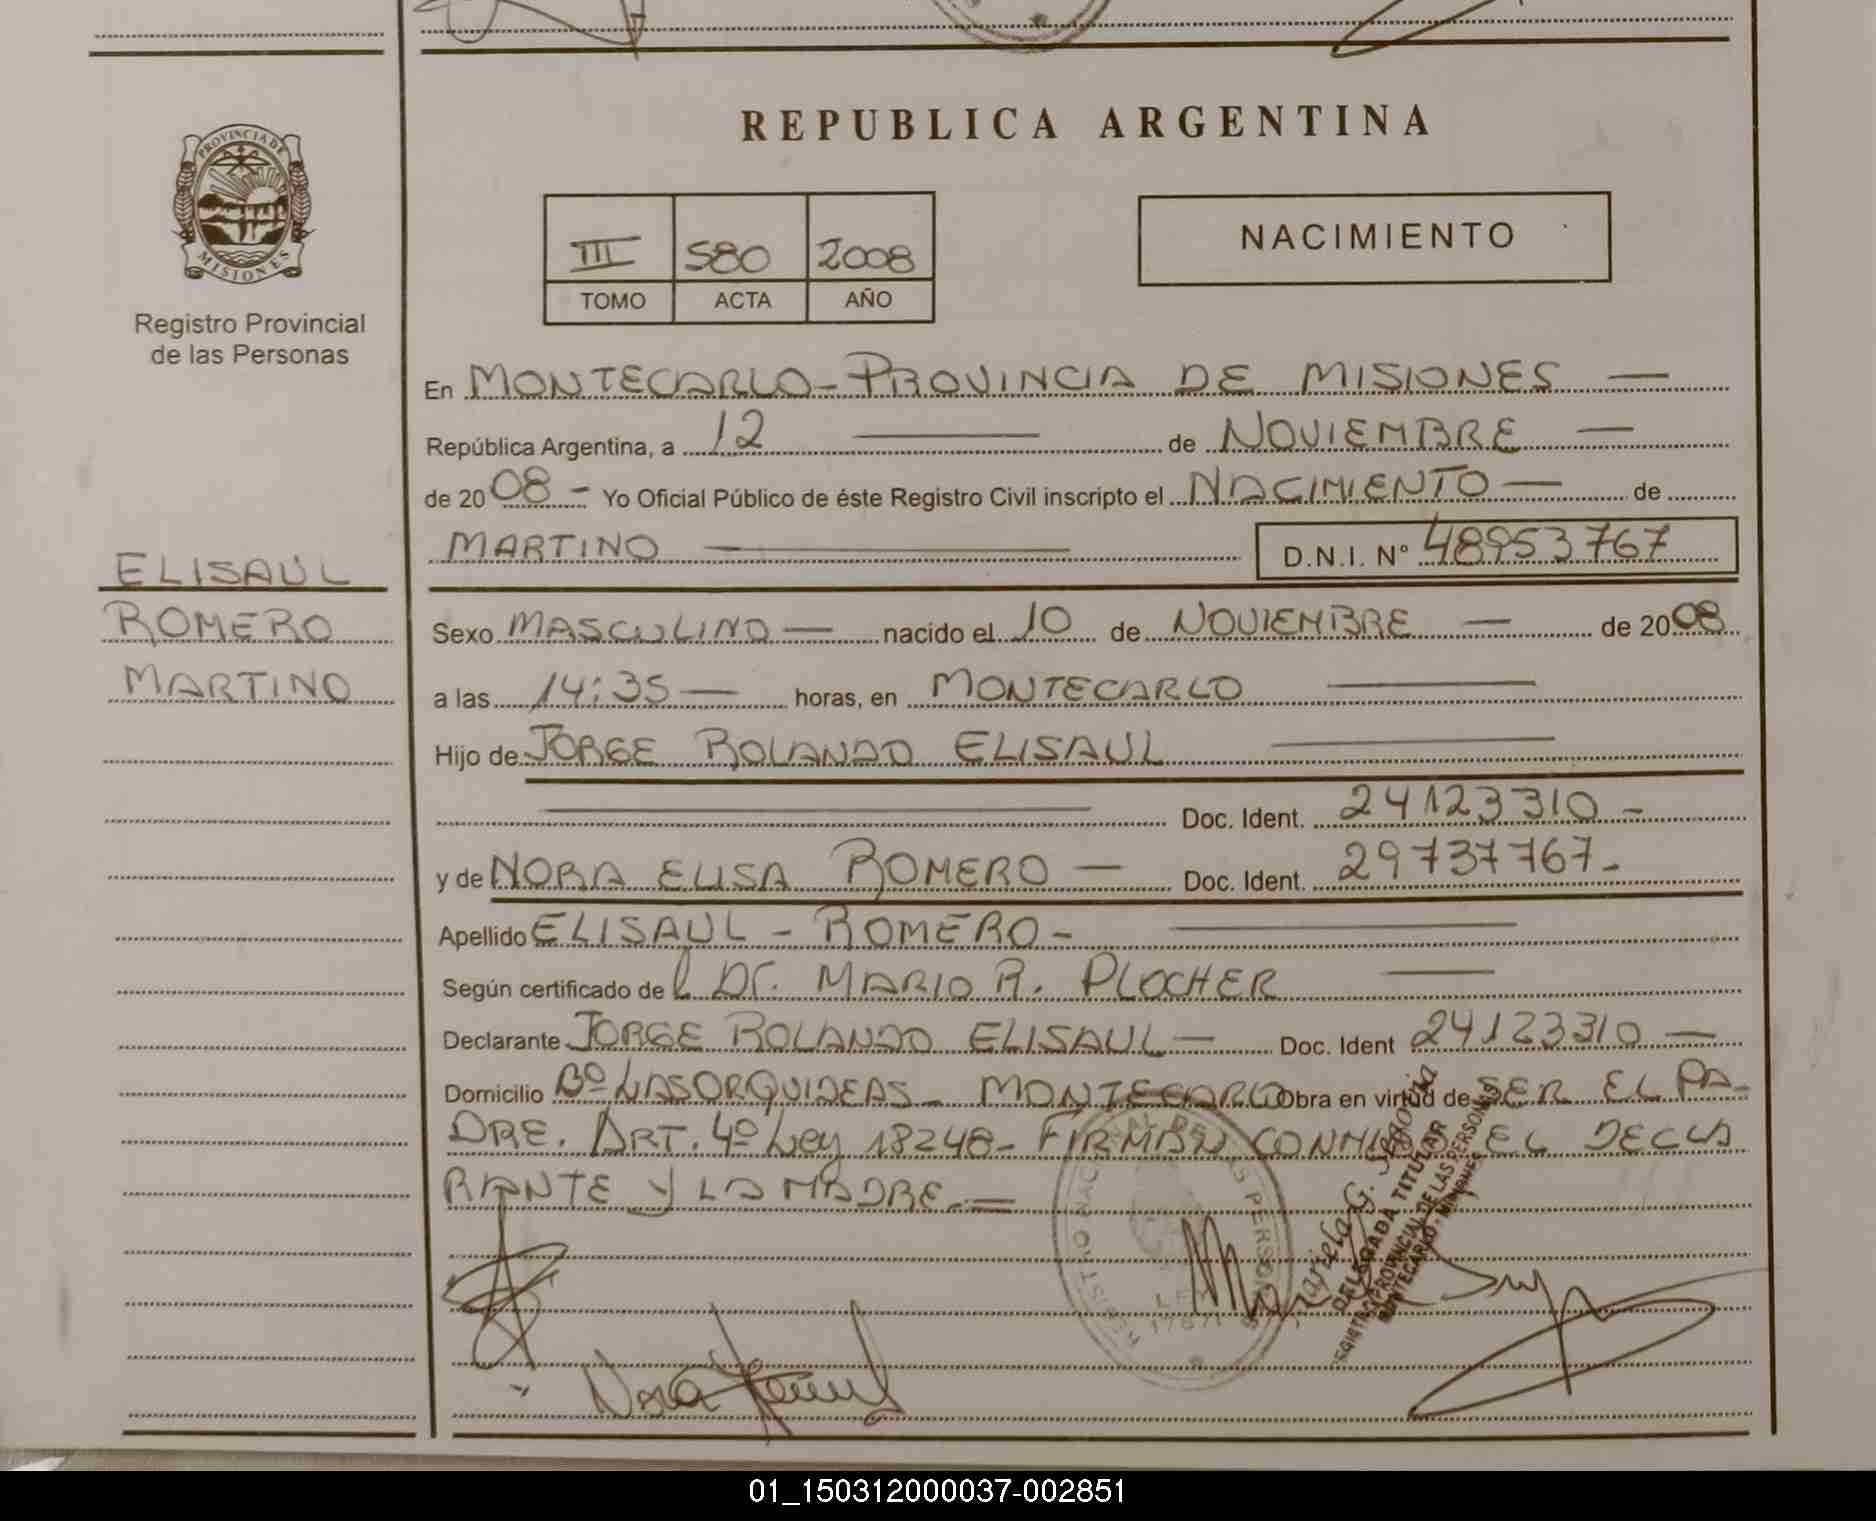 REPUBLICA ARGENTINA
PROVINCIA DE
MISIONES
Registro Provincial
de las Personas
III 580 2008
TOMO ACTA AÑO
NACIMIENTO
En MONTECARLO - PROVINCIA DE MISIONES —
República Argentina, a 12 — de NOVIEMBRE —
de 2008 - Yo Oficial Público de éste Registro Civil inscripto el NACIMIENTO — de
MARTINO — D.N.I. N° 48953767
ELISAUL
ROMERO
MARTINO
Sexo MASCULINO — nacido el 10 de NOVIEMBRE — de 2008
a las 14:35 — horas, en MONTECARLO —
Hijo de JORGE ROLANDO ELISAUL —
— Doc. Ident. 24123310 -
y de NORA ELISA ROMERO — Doc. Ident. 29737767-
Apellido ELISAUL - ROMERO -
Según certificado del Dr. MARIO R. PLOCHER —
Declarante JORGE ROLANDO ELISAUL — Doc. Ident 24123310 —
Domicilio Bº LAS ORQUIDEAS - MONTECARLO Obra en virtud de SER EL PA-
DRE. ART. 4º Ley 18248 - FIRMAN CONMIGO EL DECLA
RANTE Y LA MADRE. —
DELEGADA TITULAR
PROVINCIAL DE LAS PERSONAS
MONTECARLO - MISIONES
Nora
01_150312000037-002851